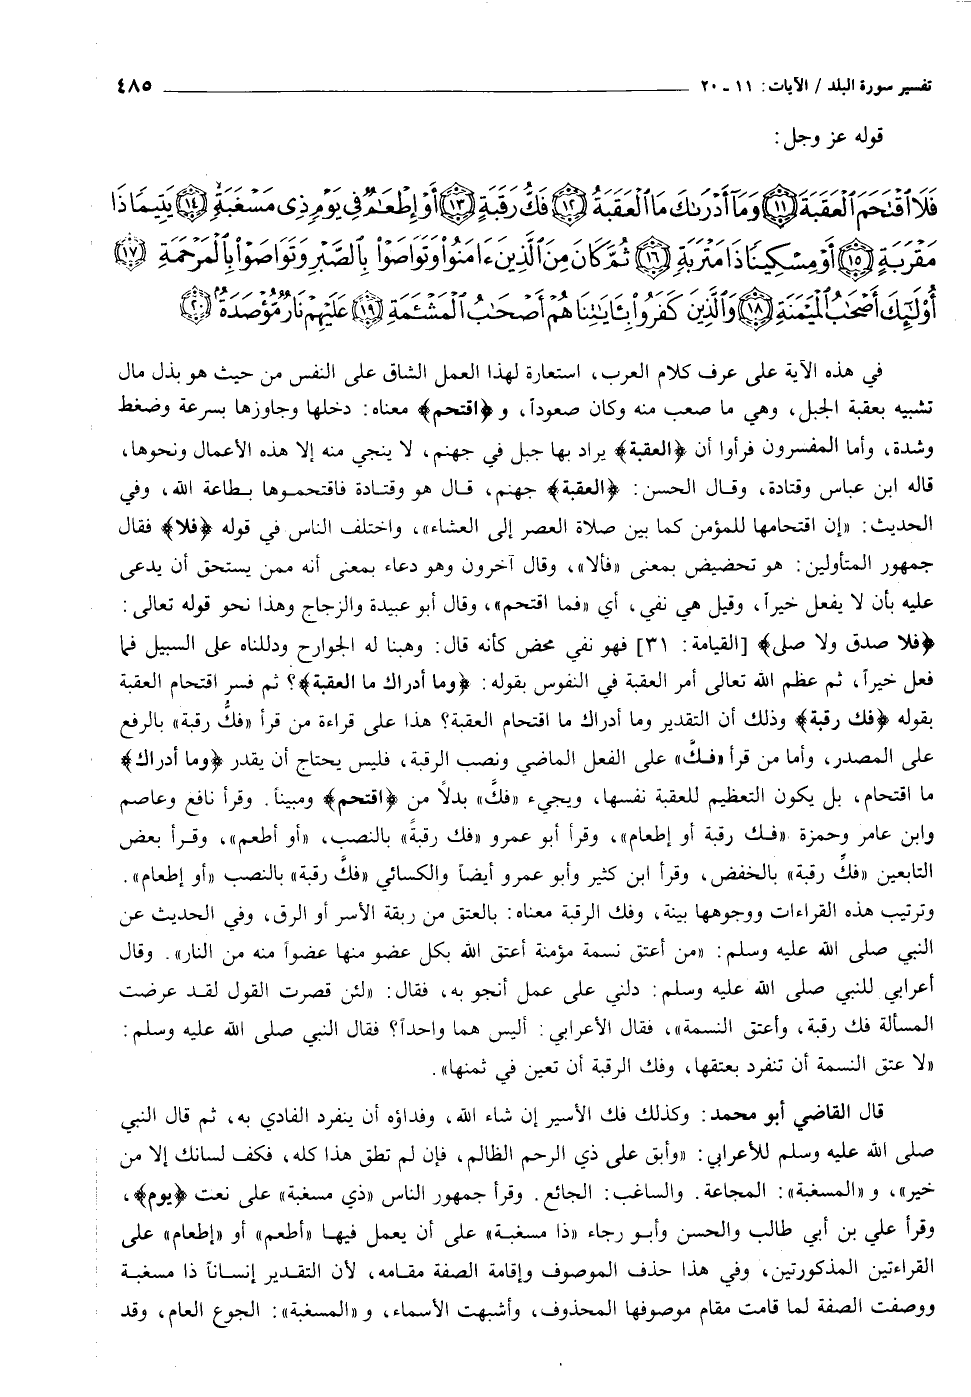 تفسير سورة البلد / الآيات: ١١ - ٢٠ ــــــــــــــــــــ ٤٨٥
قوله عز وجل:
فَلَا ٱقْتَحَمَ ٱلْعَقَبَةَ ﴿١١﴾ وَمَآ أَدْرَىٰكَ مَا ٱلْعَقَبَةُ ﴿١٢﴾ فَكُّ رَقَبَةٍ ﴿١٣﴾ أَوْ إِطْعَٰمٌ فِى يَوْمٍ ذِى مَسْغَبَةٍ ﴿١٤﴾ يَتِيمًا ذَا
مَقْرَبَةٍ ﴿١٥﴾ أَوْ مِسْكِينًا ذَا مَتْرَبَةٍ ﴿١٦﴾ ثُمَّ كَانَ مِنَ ٱلَّذِينَ ءَامَنُوا۟ وَتَوَاصَوْا۟ بِٱلصَّبْرِ وَتَوَاصَوْا۟ بِٱلْمَرْحَمَةِ ﴿١٧﴾
أُو۟لَٰٓئِكَ أَصْحَٰبُ ٱلْمَيْمَنَةِ ﴿١٨﴾ وَٱلَّذِينَ كَفَرُوا۟ بِـَٔايَٰتِنَا هُمْ أَصْحَٰبُ ٱلْمَشْـَٔمَةِ ﴿١٩﴾ عَلَيْهِمْ نَارٌ مُّؤْصَدَةٌۢ ﴿٢٠﴾
في هذه الآية على عرف كلام العرب، استعارة لهذا العمل الشاق على النفس من حيث هو بذل مال
تشبيه بعقبة الجبل، وهي ما صعب منه وكان صعوداً، و ﴿اقتحم﴾ معناه: دخلها وجاوزها بسرعة وضغط
وشدة، وأما المفسرون فرأوا أن ﴿العقبة﴾ يراد بها جبل في جهنم، لا ينجي منه إلا هذه الأعمال ونحوها،
قاله ابن عباس وقتادة، وقال الحسن: ﴿العقبة﴾ جهنم، قال هو وقتادة فاقتحموها بطاعة الله، وفي
الحديث: «إن اقتحامها للمؤمن كما بين صلاة العصر إلى العشاء»، واختلف الناس في قوله ﴿فلا﴾ فقال
جمهور المتأولين: هو تحضيض بمعنى «فألا»، وقال آخرون وهو دعاء بمعنى أنه ممن يستحق أن يدعى
عليه بأن لا يفعل خيراً، وقيل هي نفي، أي «فما اقتحم»، وقال أبو عبيدة والزجاج وهذا نحو قوله تعالى:
﴿فلا صدق ولا صلى﴾ [القيامة: ٣١] فهو نفي محض كأنه قال: وهبنا له الجوارح ودللناه على السبيل فما
فعل خيراً، ثم عظم الله تعالى أمر العقبة في النفوس بقوله: ﴿وما أدراك ما العقبة﴾؟ ثم فسر اقتحام العقبة
بقوله ﴿فك رقبة﴾ وذلك أن التقدير وما أدراك ما اقتحام العقبة؟ هذا على قراءة من قرأ «فكُّ رقبة» بالرفع
على المصدر، وأما من قرأ «فكَّ» على الفعل الماضي ونصب الرقبة، فليس يحتاج أن يقدر ﴿وما أدراك﴾
ما اقتحام، بل يكون التعظيم للعقبة نفسها، ويجيء «فكَّ» بدلاً من ﴿اقتحم﴾ ومبيناً. وقرأ نافع وعاصم
وابن عامر وحمزة «فك رقبة أو إطعام»، وقرأ أبو عمرو «فك رقبةً» بالنصب، «أو أطعم»، وقرأ بعض
التابعين «فكِّ رقبة» بالخفض، وقرأ ابن كثير وأبو عمرو أيضاً والكسائي «فكَّ رقبة» بالنصب «أو إطعام».
وترتيب هذه القراءات ووجوهها بينة، وفك الرقبة معناه: بالعتق من ربقة الأسر أو الرق، وفي الحديث عن
النبي صلى الله عليه وسلم: «من أعتق نسمة مؤمنة أعتق الله بكل عضو منها عضواً منه من النار». وقال
أعرابي للنبي صلى الله عليه وسلم: دلني على عمل أنجو به، فقال: «لئن قصرت القول لقد عرضت
المسألة فك رقبة، وأعتق النسمة»، فقال الأعرابي: أليس هما واحداً؟ فقال النبي صلى الله عليه وسلم:
«لا عتق النسمة أن تنفرد بعتقها، وفك الرقبة أن تعين في ثمنها».
قال القاضي أبو محمد: وكذلك فك الأسير إن شاء الله، وفداؤه أن ينفرد الفادي به، ثم قال النبي
صلى الله عليه وسلم للأعرابي: «وأبق على ذي الرحم الظالم، فإن لم تطق هذا كله، فكف لسانك إلا من
خير»، و «المسغبة»: المجاعة. والساغب: الجائع. وقرأ جمهور الناس «ذي مسغبة» على نعت ﴿يوم﴾،
وقرأ علي بن أبي طالب والحسن وأبو رجاء «ذا مسغبة» على أن يعمل فيها «أطعم» أو «إطعام» على
القراءتين المذكورتين، وفي هذا حذف الموصوف وإقامة الصفة مقامه، لأن التقدير إنساناً ذا مسغبة
ووصفت الصفة لما قامت مقام موصوفها المحذوف، وأشبهت الأسماء، و «المسغبة»: الجوع العام، وقد